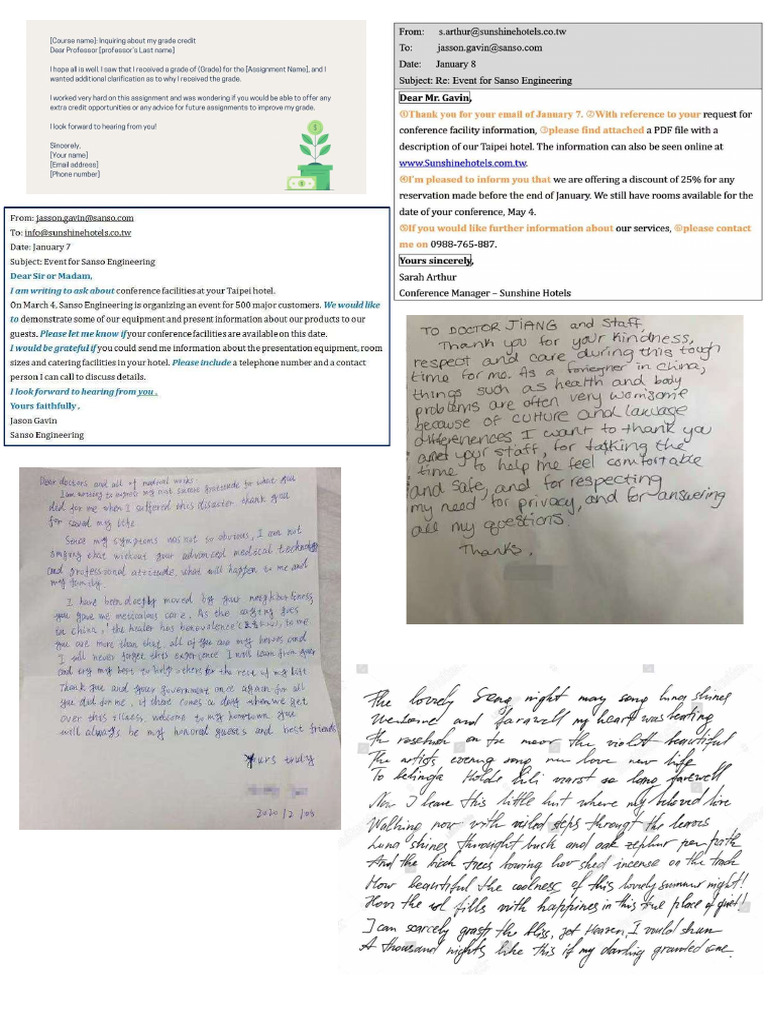 [Course name]: Inquiring about my grade credit
Dear Professor [professor's Last name]
I hope all is well. I saw that I received a grade of {Grade} for the [Assignment Name], and I
wanted additional clarification as to why I received the grade.
I worked very hard on this assignment and was wondering if you would be able to offer any
extra credit opportunities or any advice for future assignments to improve my grade.
I look forward to hearing from you!
Sincerely,
[Your name]
[Email address]
[Phone number]
From: s.arthur@sunshinehotels.co.tw
To: jasson.gavin@sanso.com
Date: January 8
Subject: Re: Event for Sanso Engineering
Dear Mr. Gavin,
①Thank you for your email of January 7. ②With reference to your request for
conference facility information, ③please find attached a PDF file with a
description of our Taipei hotel. The information can also be seen online at
www.Sunshinehotels.com.tw.
④I'm pleased to inform you that we are offering a discount of 25% for any
reservation made before the end of January. We still have rooms available for the
date of your conference, May 4.
⑤If you would like further information about our services, ⑥please contact
me on 0988-765-887.
Yours sincerely,
Sarah Arthur
Conference Manager – Sunshine Hotels
From: jasson.gavin@sanso.com
To: info@sunshinehotels.co.tw
Date: January 7
Subject: Event for Sanso Engineering
Dear Sir or Madam,
I am writing to ask about conference facilities at your Taipei hotel.
On March 4, Sanso Engineering is organizing an event for 500 major customers. We would like
to demonstrate some of our equipment and present information about our products to our
guests. Please let me know if your conference facilities are available on this date.
I would be grateful if you could send me information about the presentation equipment, room
sizes and catering facilities in your hotel. Please include a telephone number and a contact
person I can call to discuss details.
I look forward to hearing from you .
Yours faithfully ,
Jason Gavin
Sanso Engineering
TO DOCTOR JIANG and Staff,
Thank you for your kindness,
respect and care during this tough
time for me. As a foreigner in China,
things such as health and body
problems are often very worrisome
because of culture and
differences. I want to thank you
and your staff, for taking the
time to help me feel comfortable
and safe, and for respecting
my need for privacy, and for answering
all my questions.
Thanks.
Dear doctors and all of medical works.
I am writing to express my most sincere gratitude for what you
did for me when I suffered this disaster thank you
for saved my life
Since my symptoms was not so obvious, I can not
imaging that without your advanced medical technology
and professional attitude, what will happen to me and
my family.
I have been deeply moved by your
you gave me meticulous care. As the saying goes
in China, "the healer has benevolence" to me
you are more than that, all of you are my heroes and
I will never forget this experience I will learn from you
and try my best to help others for the rest of my life
Thank you and your government once again for all
you did for me, if there comes a day when we get
over this illness, welcome to my hometown. You
will always be my honored guests and best friends
Yours truly
2020/2/09
The lovely night may song luna shines
Welcome and farewell my heart was beating
The rosebush on the moor the violet beautiful
The artists evening song new love new life
To belinda Holde Lili warst so long farewell
Now I leave this little hut where my beloved live
Walking now with veiled steps through the leaves
Luna shines throught bush and oak zephyr path
And the birch trees bowing low shed incense on the track
How beautiful the coolness of this lovely summer night!
How the fills with happiness in this true place of quiet!
I can scarcely grasp the bliss, yet Heaven, I would shun
A thousand nights like this if my darling granted one.